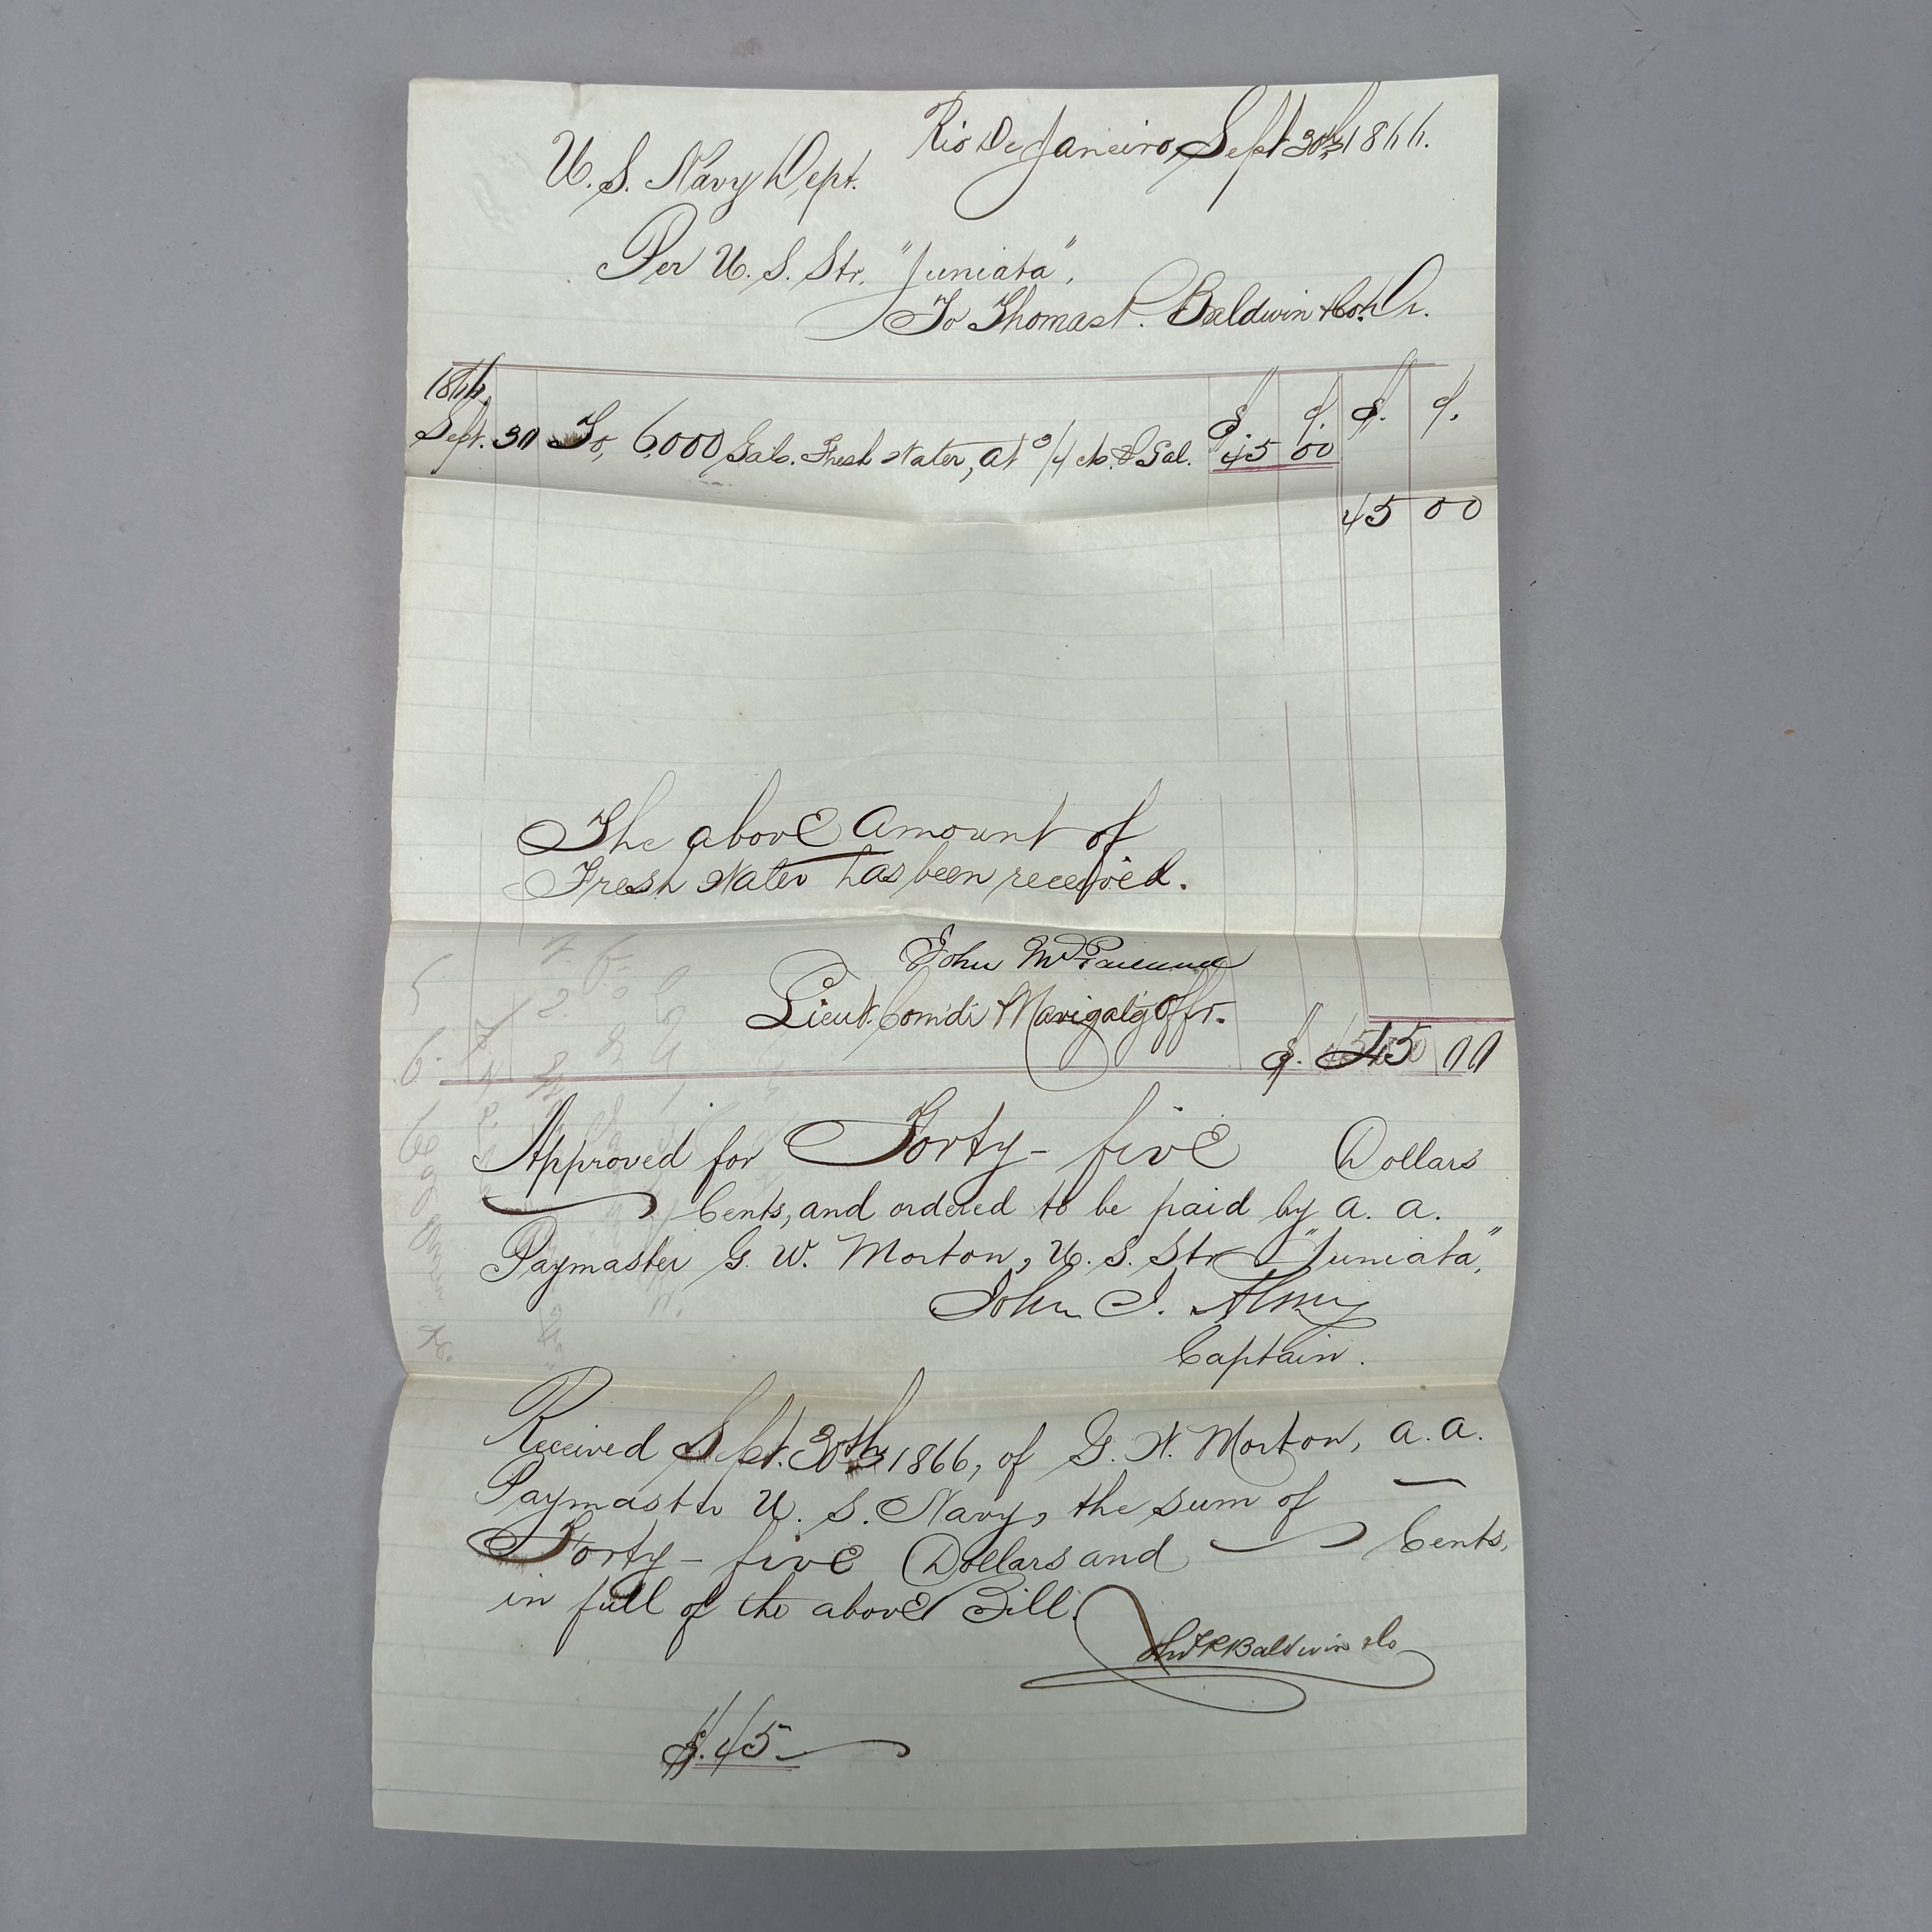 Rio De Janeiro, Sept 30th, 1866.
U. S. Navy Dept.
Per U. S. Str. "Juniata",
To Thomas Baldwin & Co. Dr.
1866. $. c. $. c.
Sept. 30 To, 6,000 Gals. Fresh Water, at 3/4 cts. ⅌ Gal. 45 00
45 00
The above amount of
Fresh Water has been received.
John
Lieut. Comdr & Navigat'g Offr.
$. 45 00
Approved for Forty-five Dollars
Cents, and ordered to be paid by A. A.
Paymaster G. W. Morton, U. S. Str "Juniata",
John J. Almy
Captain.
Received Sept. 30th, 1866, of G. W. Morton, A. A.
Paymaster U. S. Navy, the sum of
Forty-five Dollars and — Cents,
in full of the above Bill.
Baldwin & Co
$.45